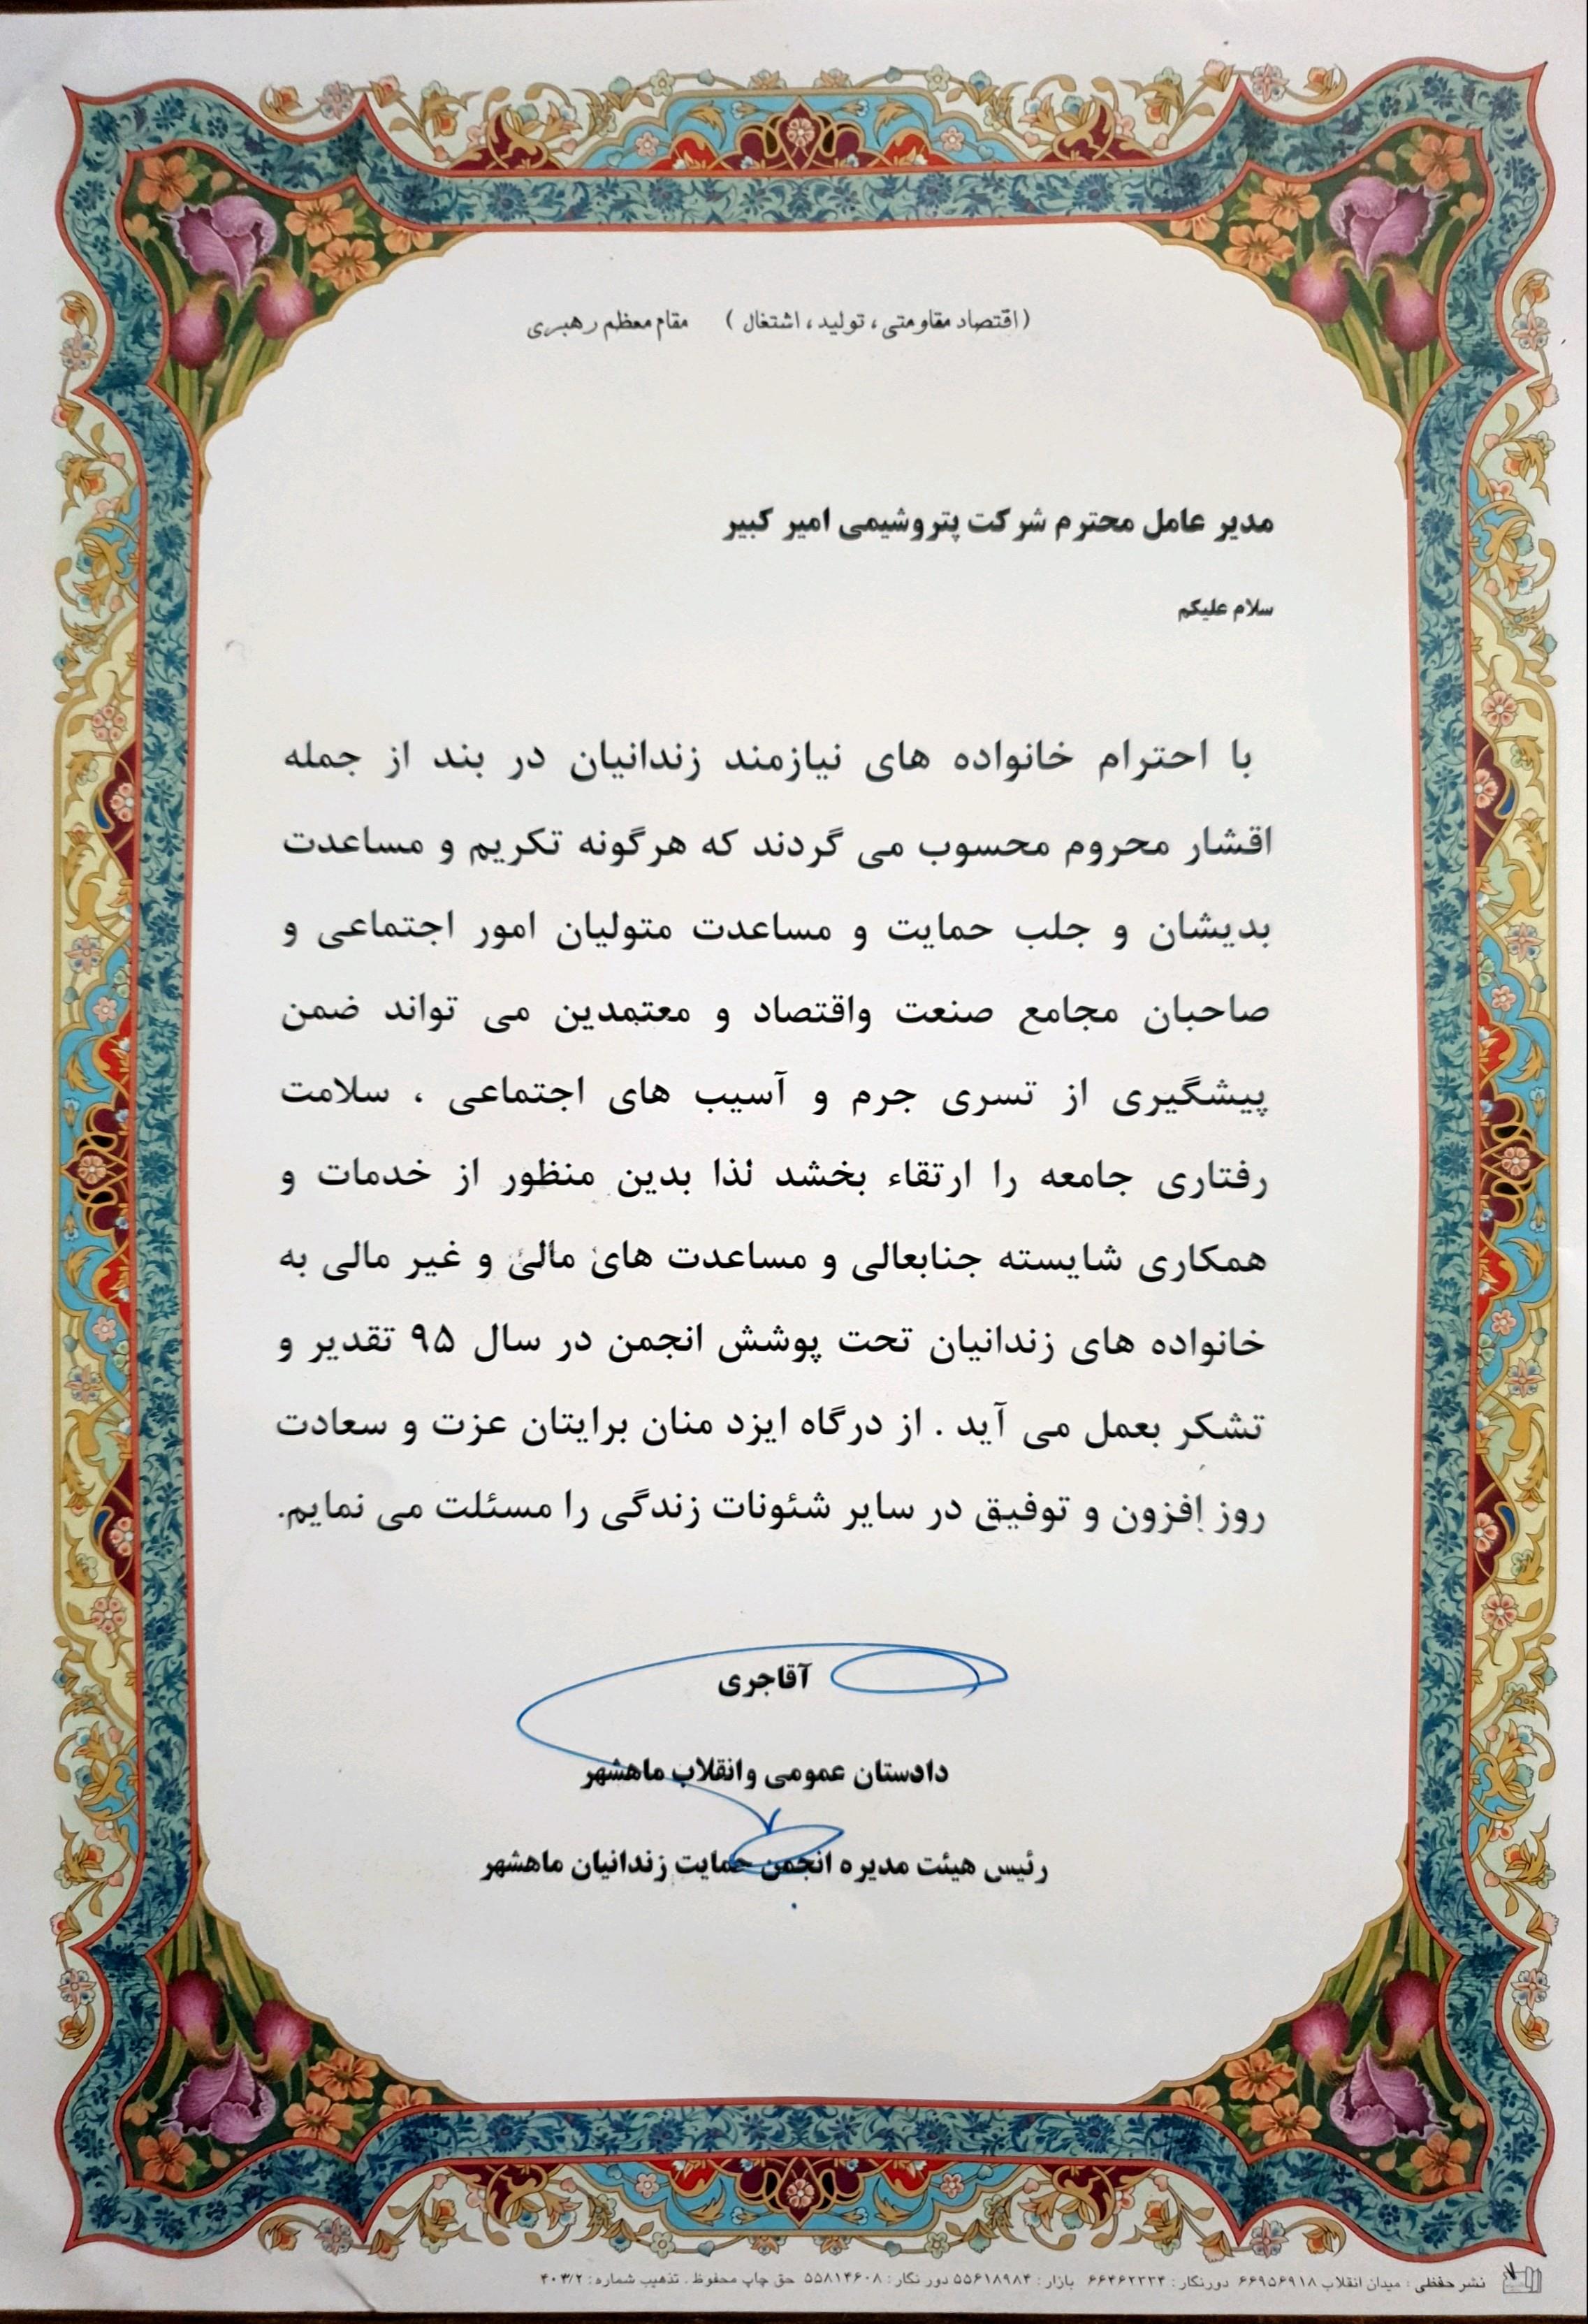 (اقتصاد مقاومتی ، تولید ، اشتغال ) مقام معظم رهبری
مدیر عامل محترم شرکت پتروشیمی امیر کبیر
سلام علیکم
با احترام خانواده های نیازمند زندانیان در بند از جمله
اقشار محروم محسوب می گردند که هرگونه تکریم و مساعدت
بدیشان و جلب حمایت و مساعدت متولیان امور اجتماعی و
صاحبان مجامع صنعت واقتصاد و معتمدین می تواند ضمن
پیشگیری از تسری جرم و آسیب های اجتماعی ، سلامت
رفتاری جامعه را ارتقاء بخشد لذا بدین منظور از خدمات و
همکاری شایسته جنابعالی و مساعدت های مالی و غیر مالی به
خانواده های زندانیان تحت پوشش انجمن در سال ۹۵ تقدیر و
تشکر بعمل می آید . از درگاه ایزد منان برایتان عزت و سعادت
روز افزون و توفیق در سایر شئونات زندگی را مسئلت می نمایم.
آقاجری
دادستان عمومی وانقلاب ماهشهر
رئیس هیئت مدیره انجمن حمایت زندانیان ماهشهر
نشر حفظی : میدان انقلاب ۶۶۹۵۶۹۱۸ دورنگار : ۶۶۴۶۲۲۳۴ بازار : ۵۵۶۱۸۹۸۴ دور نگار : ۵۵۸۱۴۶۰۸ حق چاپ محفوظ . تذهیب شماره : ۴۰۳/۲